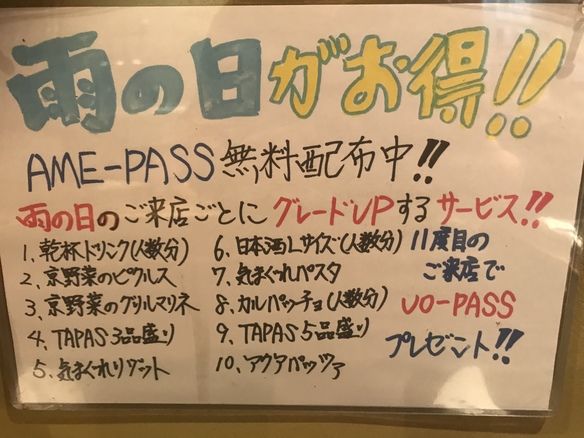 雨の日がお得!!
AME-PASS 無料配布中!!
雨の日のご来店ごとにグレードUPするサービス!!
1. 乾杯ドリンク(人数分)
2. 京野菜のピクルス
3. 京野菜のグリルマリネ
4. TAPAS 3品盛り
5. 気まぐれリゾット
6. 日本酒Lサイズ(人数分)
7. 気まぐれパスタ
8. カルパッチョ(人数分)
9. TAPAS 5品盛り
10. アクアパッツァ
11度目の
ご来店で
UO-PASS
プレゼント!!